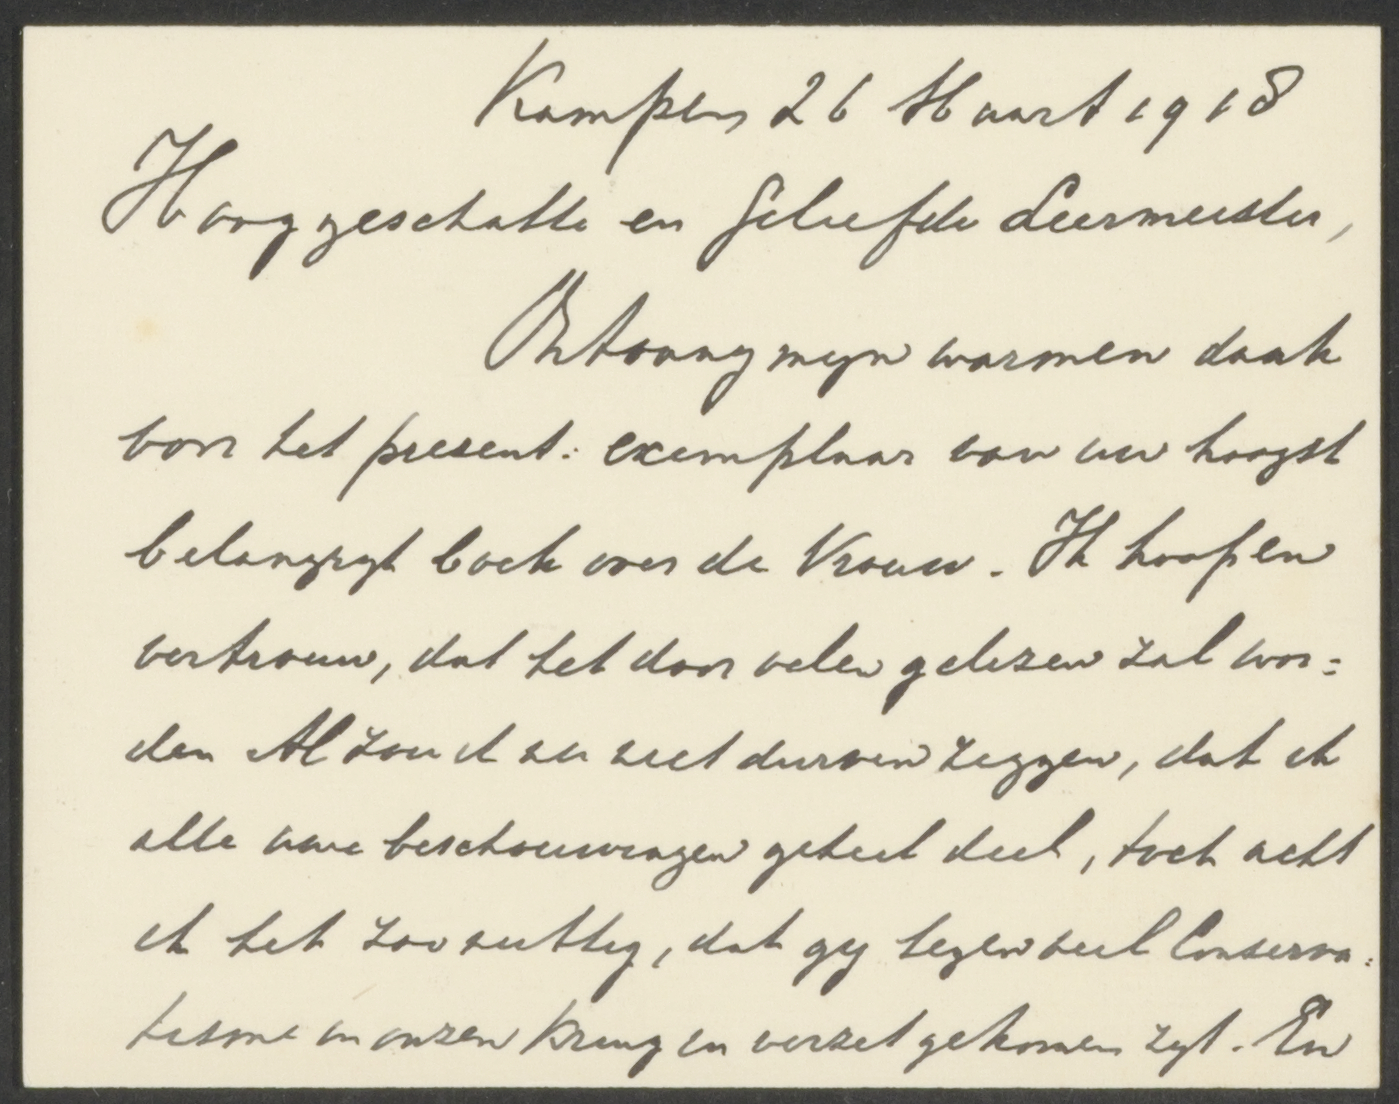 Kampen 26 Maart 1918
Hooggeschatte en Geliefde Leermeester,
Ontvang mijn warmen dank
voor het present: exemplaar van uw hoogst
belangrijk boek over de Vrouw. Ik hoop en
vertrouw, dat het door velen gelezen zal wor:
den Al zou ik nu niet durven zeggen, dat ik
alle uwe beschouwingen geheel deel, toch acht
ik het zoo nuttig, dat gij tegen veel Conserva:
tisme in onzen Kring in verzet gekomen zijt. En